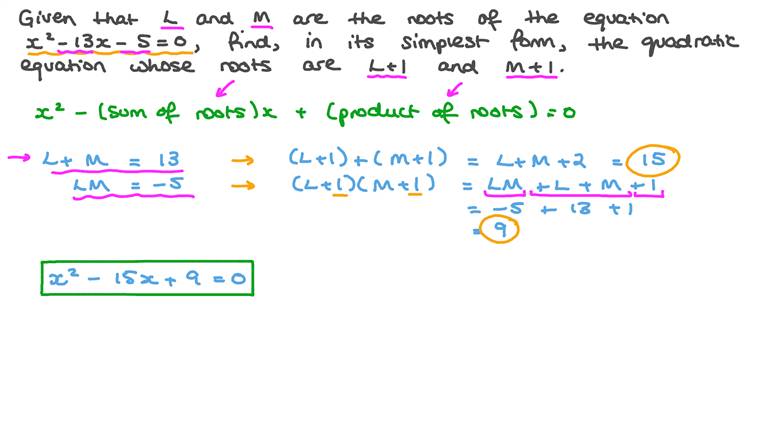 Given that L and M are the roots of the equation
x² - 13x - 5 = 0, find, in its simplest form, the quadratic
equation whose roots are L+1 and M+1.
x² - (sum of roots)x + (product of roots) = 0
→ L + M = 13 → (L+1) + (M+1) = L + M + 2 = 15
LM = -5 → (L+1)(M+1) = LM + L + M + 1
= -5 + 13 + 1
= 9
x² - 15x + 9 = 0